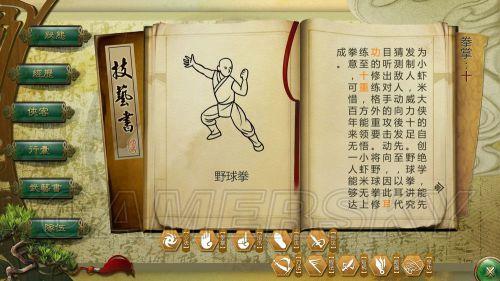 狀態
經歷
俠客
行囊
技藝書
隊伍
技藝書
野球拳
拳掌：十
为小虾米大侠的自创绝学，能先
发制人，威力十足。野球拳讲究
猜测敌人动向後发先至，以耳代
目听出对手的攻击动向，因此耳
功的修练格外重要。将野球拳修
练至十重，方能领悟小虾米无上
拳意，可惜百年来无一人能够达
成。
GAMERSKY